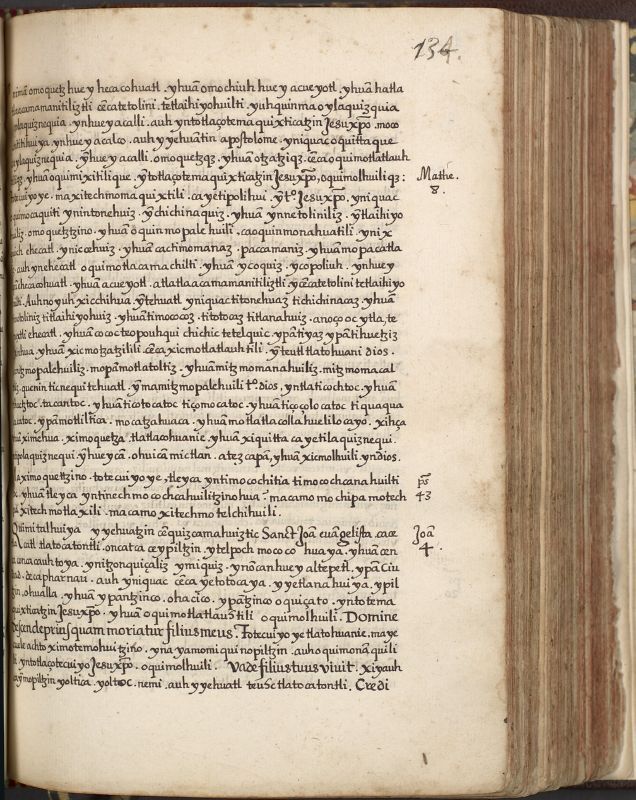 134.
omoquetz hue y hecacohuatl. yhuā omochiuh hue y acueyotl. yhuā hatla
tlacamamanitiliztli cēcatetolini. tetlaihiyohuilti. yuhquinma oylaquizquia
ylaquiznequia. ynhueyacalli. auh yntotlaçotemaquixticatzin Jesu xp̄o. moco
ynhueyacalco. auh yyehuātin apostolome. yniquac oquittaque
ylaquiznequia. ȳhueyacalli. omoquetzqz. yhuā otzatziqz. cēca oquimotlatlauh
yhuā oquimixitilique. ȳtotlaçotemaquixticatzin Jesu xp̄o, oquimolhuiliqz:
Mathe.
8.
yoye. maxitechmomaquixtili. ca yetipolihui. ȳtº Jesu xp̄o, yniquac
oquimocaquiti ynintonehuiz. ȳchichinaquiz. yhuā ynnetoliniliz. ȳtlaihiyo
omoquetztzino. yhuā oquinmopalehuili. caoquinmonahuatili. ynix
ehecatl. ynicēhuiz. yhuā cactimomanaz. pacamaniz. yhuā mopacatla
auh ynehecatl oquimotlacamachilti. yhuā ycoquiz. ycopoliuh. ynhuey
ehecacohuatl. yhuā acueyotl. atlatlaacamamanitiliztli ȳcēcatetolini tetlaihiyo
Auhnoyuh xicchihua. ȳtehuatl yniquac titonehuaz tichichinacaz. yhuā
titlaihiyohuiz. yhuā timococoz. titotocaz titlanahuiz. anoço oc ytla, te
ehecatl. yhuā cococ teopouhqui chichic tetelquic. ypātiyaz ypātihuetziz
yhuā xicmotzatzilili. cēca xicmotlatlauhtili. ȳteutl tlatohuani dios.
mitzmopalehuiliz. mopāmotlatoltiz. yhuāmitzmomanahuiliz. mitzmomacal
quenin ticnequi tehuatl. ȳmamitzmopalehuili tº dios, yntlaticochtoc. yhuā
tacantoc. yhuā ticotocatoc tiçomocatoc. yhuā tiçoçolocatoc tiquaqua
ypāmotlilticā. mocatzahuaca. yhuā motlatlacolla huelilocayo. xihça
ximehua. ximoquetza. tlatlacohuanie, yhuā xiquitta cayetilaquiznequi.
ȳhueyçā. ohuicā mictlan. atezcapā, yhuā xicmolhuili yndios.
ximoquettzino. totecuiyoye, tleyca yntimocochitia timocochcanahuilti
yhuā tleyca yntinechmocochcahuilitzinohua? macamo mochipa motech
p̄s
43
xitechmotlaxili. macamo xitechmotelchihuili.
yyehuatzin cēquizcamahuiztic Sanct Joā euāgelista. cace
Joā
4.
tlatocatontli. oncatca ceypiltzin, ytelpoch mococohuaya. yhuā cen
ynitzonquiçaliz ymiquiz. ynōcanhuey altepetl. ypāciu
decapharnau. auh yniquac cēca yetotocaya. yyetlanahuiya. ypil
ohualla. yhuā ypantzinco. ohacico. ypātzinco oquiçato. yntotema
quixticatzin Jesu xp̄o. yhuā oquimotlatlauhtili oquimolhuili. Domine
descende priusquam moriatur filius meus. Totecuiyoye tlatohuanie. maye
achto ximotemohuitzino. ynayamomiqui nopiltzin. auh oquimonāquili
yntotlaçotecuiyo Jesu xp̄o. oquimolhuili. Vade filius tuus vivit. xiyauh
mopiltzin yoltica. yoltoc. nemi. auh yyehuatl teuhctlatocatontli. Credi